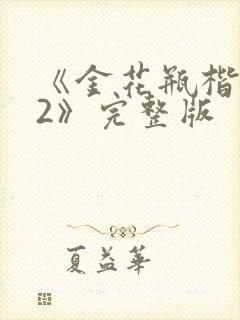 《金花瓶楷
2》完整版
夏益华